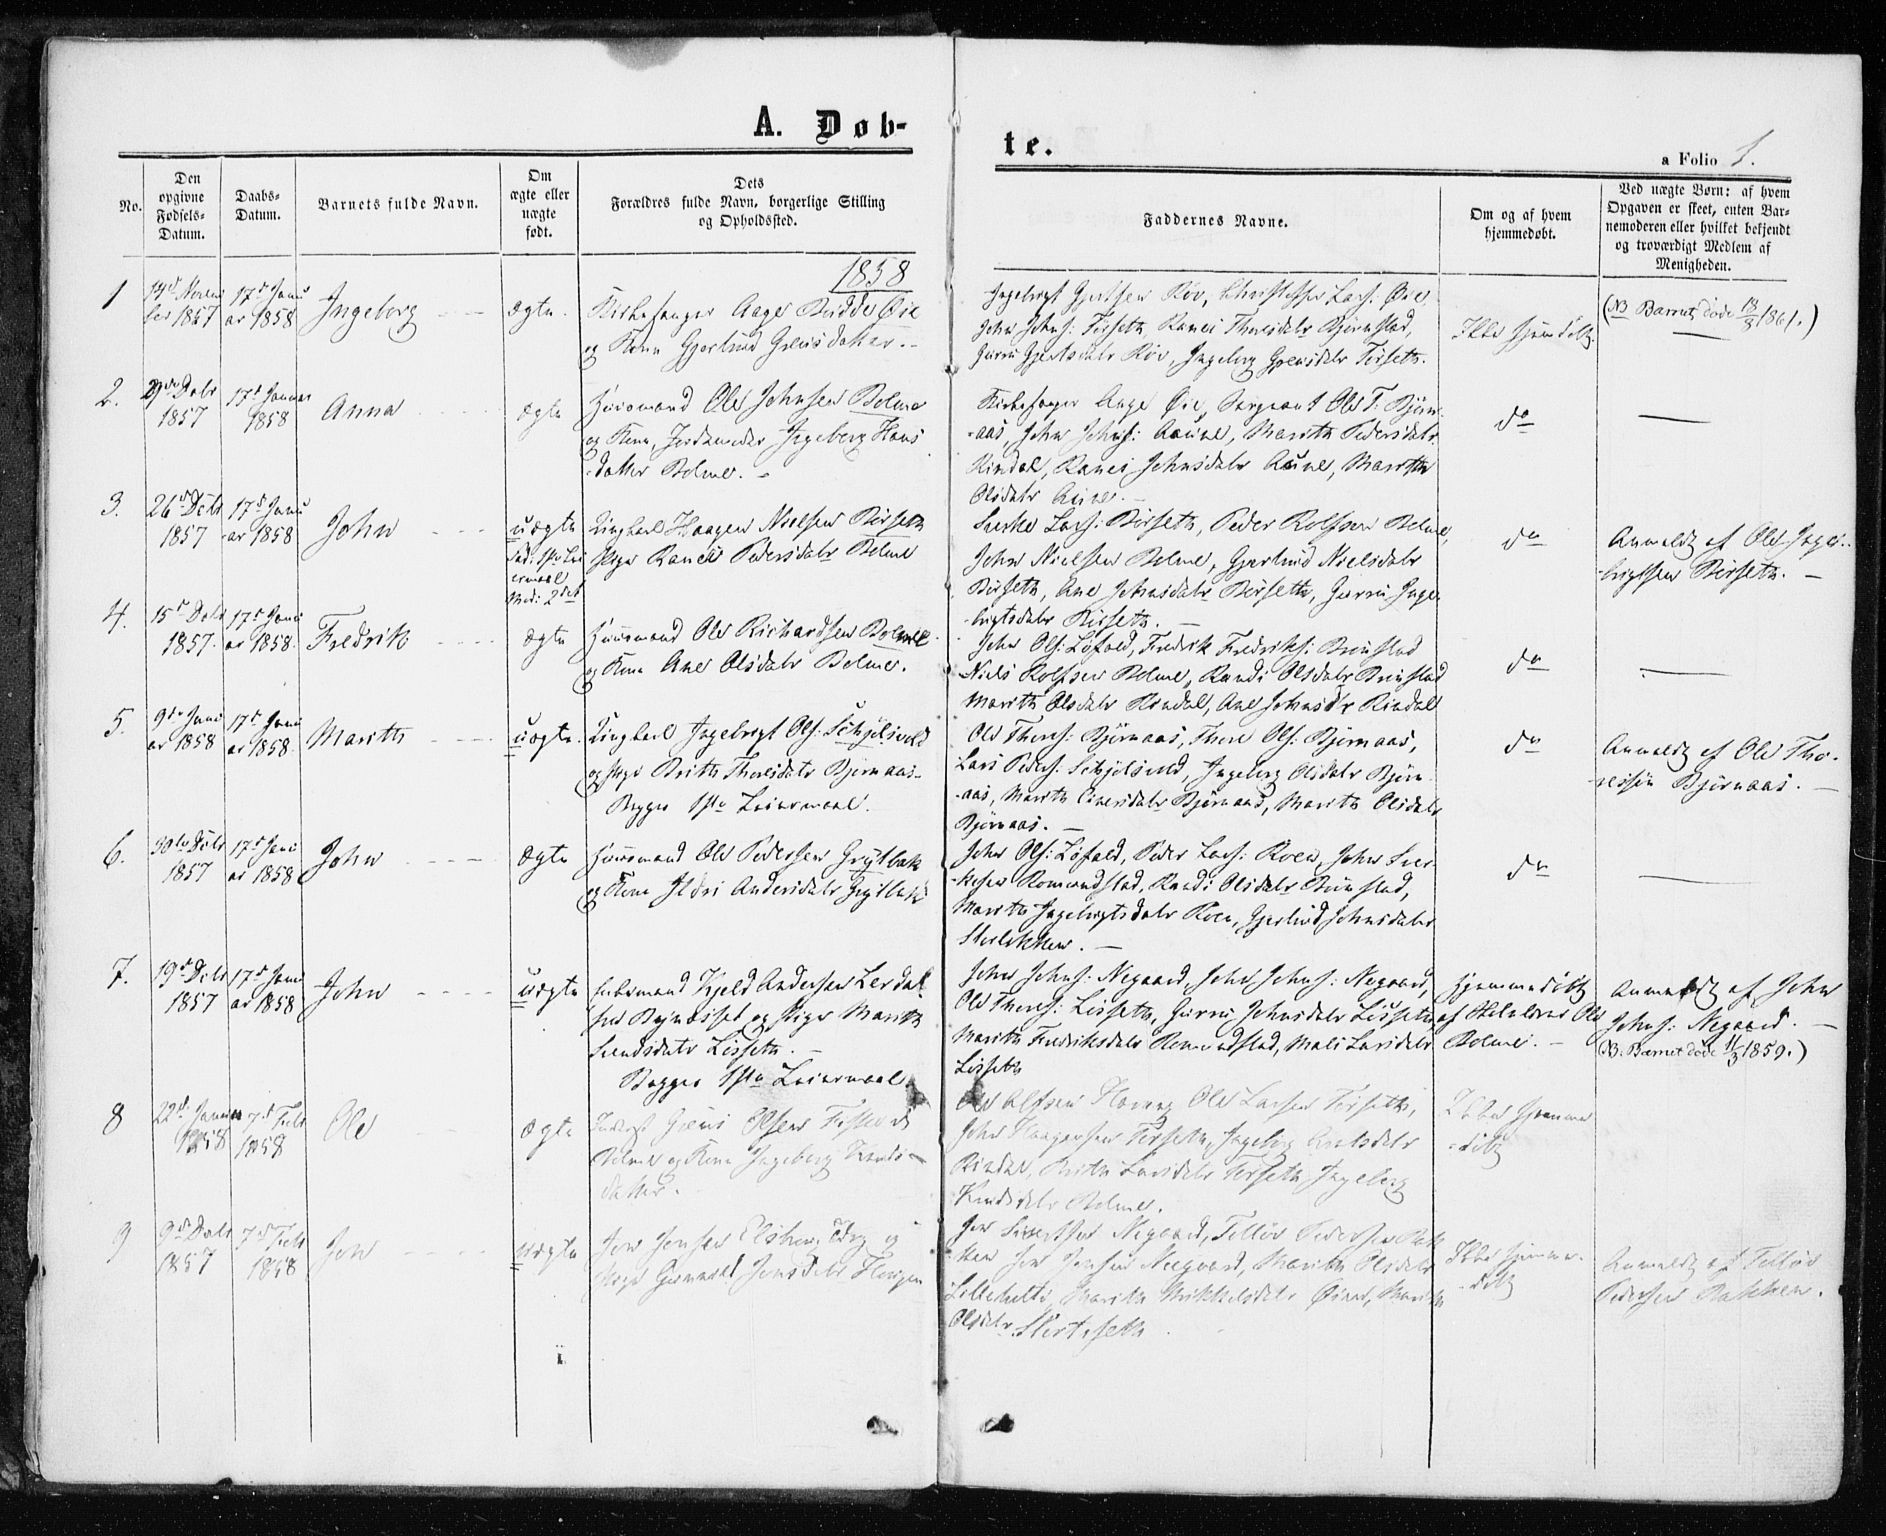 A. Døb-
te.
a Folio 1.
No.
Den
opgivne
Fødsels-
Datum.
Daabs-
Datum.
Barnets fulde Navn.
Om
ægte eller
uægte
født.
Dets
Forældres fulde Navn, borgerlige Stilling
og Opholdssted.
Faddernes Navne.
Om og af hvem
hjemmedøbt.
Ved uægte Børn: af hvem
Opgaven er skeet, enten Bar-
nemoderen eller hvilket bekjendt
og troværdigt Medlem af
Menigheden.
1858
1
14d Novem
ber 1857
17d Janu
ar 1858
Ingeborg
Ægte.
Kirkesanger Aage Budde Øie
og Kone Gjertrud Greisdatter.
Ingebrigt Gjertsen Røv, Christopher Lars: Øie
John Johns: Tørseth, Ranei Thoresdatr Bjørnstad,
Gurru Gjertsdatr Røv, Ingeborg Greisdatr Tørseth.
Ikke hjemdøbt.
(NB Barnet døde 13/3 1861.)
2.
29de Debr
1857
17d Januar
1858
Anna
Ægte
Huusmand Ole Johnsen Bolme
og Kone, Jordemoder Ingeborg Hans
datter Bolme. -
Kirkesanger Aage Øie, Sergeant Ole T. Bjørn-
aas, John Johns: Aune, Marith Pedersdatr
Rindal, Ranei Johnsdatr Aune, Marith
Olsdatr Aune. -
do
3.
26d Debr
1857
17d Janu
ar 1858
John
uægte
Fad: 1ste Lei
ermaal
Mod: 2det
Ungkarl Haagen Nielsen Børseth
Pige Ranei Pedersdatr Bolme
Sivert Lars: Børseth, Peder Rolfsen Bolme,
John Nielsen Bolme, Gjertrud Nielsdatr
Børseth, Ane Johnsdatr Børseth, Gurru Inge-
brigtsdatr Børseth. -
do
Anmeldt af Ole Inge-
brigtsen Børseth. -
4.
15d Debr
1857.
17d Janu
ar 1858.
Fredrik
Ægte
Huusmand Ole Richardsen Bolme
og Kone Ane Olsdatr Bolme.
John Ols: Løfald, Fredrik Fredriks: Brunstad
Niels Rolfsen Bolme, Randi Olsdatr Brunstad
Marith Olsdatr Rindal, Ane Johnsdr Rindal
do
5.
9de Janu
ar 1858
17d Janu
ar 1858.
Marith
uægte.
Ungkarl Ingebrigt Ols: Schjølsvold
og Pige Brith Thoresdatr Bjørnaas-
Begges 1ste Leiermaal.
Ole Thores: Bjørnaas, Thore Ols: Bjørnaas,
Lars Peders: Schjølsvold, Ingeborg Olsdatr Bjørn-
aas, Marith Einersdatr Bjørnaas, Marith Olsdatr
Bjørnaas. -
do
Anmeldt af Ole Tho-
ressøn Bjørnaas. -
6.
30te Debr
1857
17d Janu
ar 1858
John
Ægte
Huusmand Ole Pedersen Grytbak
og Kone Ildri Andersdatr Grytbak
John Ols: Løfald, Peder Lars: Roen, John Siver-
Romundstad, Randi Olsdatr Brunstad,
Marith Ingebrigtsdatr Roen, Gjertrud Johnsdatr
Storløkken. -
do
7.
19d Debr
1857
17d Janu
ar 1858
John
uægte
Enkemand Kjeld Andersen Lerdal
fra Bynæsset og Pige Marith
Svendsdatr Lisseth. -
Begges 1ste Leiermaal
John Johns: Negaard, John Johns: Negaard,
Ole Thores: Lisseth, Gurru Johnsdatr Lisseth,
Marith Fredriksdatr Romundstad, Mali Larsdatr
Lisseth
hjemmedøbt
af Ole
Bolme. -
Anmeldt af John
Johns: Negaard. -
(NB. Barnet døde 11/3 1859.)
8
22d Januar
1858
7d Febr
1858
Ole
Ægte
Greis Olsen
Bolme og Kone Ingeborg Knuds-
datter.
Ole Olsen Ole Larsen Tørseth,
John Haagensen Tørseth, Ingeborg
Rindal, Brith Larsdatr Tørseth, Ingeborg
Knudsdatr Bolme.
Ikke hjemme
døbt
9
9d Debr
1857
7d Febr
1858
Jon
uægte
Jon Jonsen og
Pige Jonsdatr Haugen
Jon Sivertsen Negaard, Tellev Pedersen Bak-
ken Jon Jonsen Negaard, Marith Olsdatr
Marith Mikkelsdatr Øien, Marith
Olsdatr
Ikke hjemme-
døbt
Anmeldt af Tellev
Pedersen Bakken.